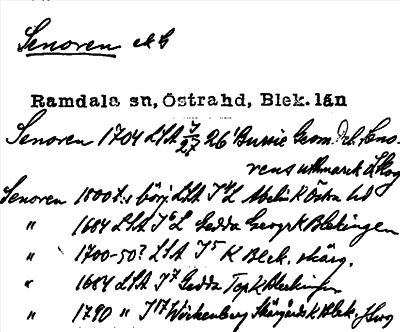 Senoren ö G
Ramdala sn, Östrahd, Blek. län
Senoren 1704 LSA I/27 26¹ Burrie Geom. Del. Seno-
rens utmarck Skog
Senoren 1800 t.s börj. LSA I⁴L Abelin K Östra hd
" 1684 LSA I⁶L Gedda Geogr K Blekingen
" 1700-50? LSA I⁵ K Bleck. skärg.
" 1684 LSA I⁷ Gedda Top K Bleckingen
" 1790 " I¹⁷ Wörkenberg Skärgårds K Bleck. Skog